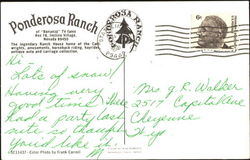 Ponderosa Ranch
of "Bonanza" TV fame
Incline Village,
Nevada 89450
The legendary Ranch House home of the Cartwrights, amusements, horseback riding, hayrides,
antique auto and carriage collection.
PONDEROSA RANCH
6¢
Hi,
Lots of snow,
Having very
good time. Here
had a party last
nite & thought
you'd like it.
Mrs J. R. Walker
2517 Capitol Ave
Cheyenne
Wyo
Color Photo by Frank Carroll